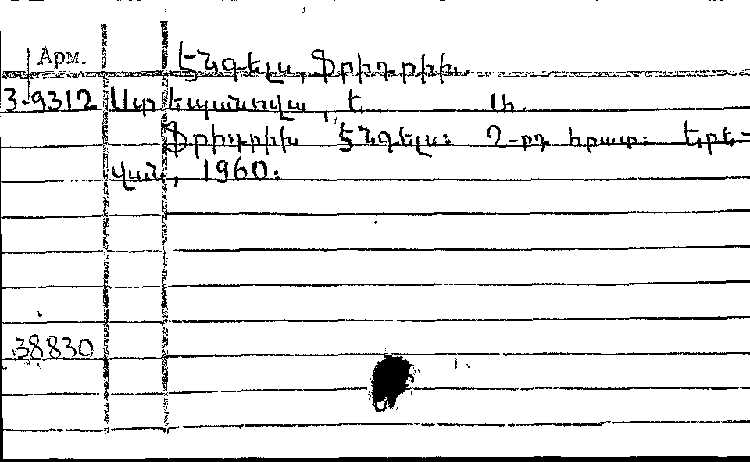 Арм. Էնգելս, Ֆրիդրիխ
3-9312 Ստեպանովա, Ե. Ա.
Ֆրիդրիխ Էնգելս: 2-րդ հրատ: Երե-
վան, 1960.
38830